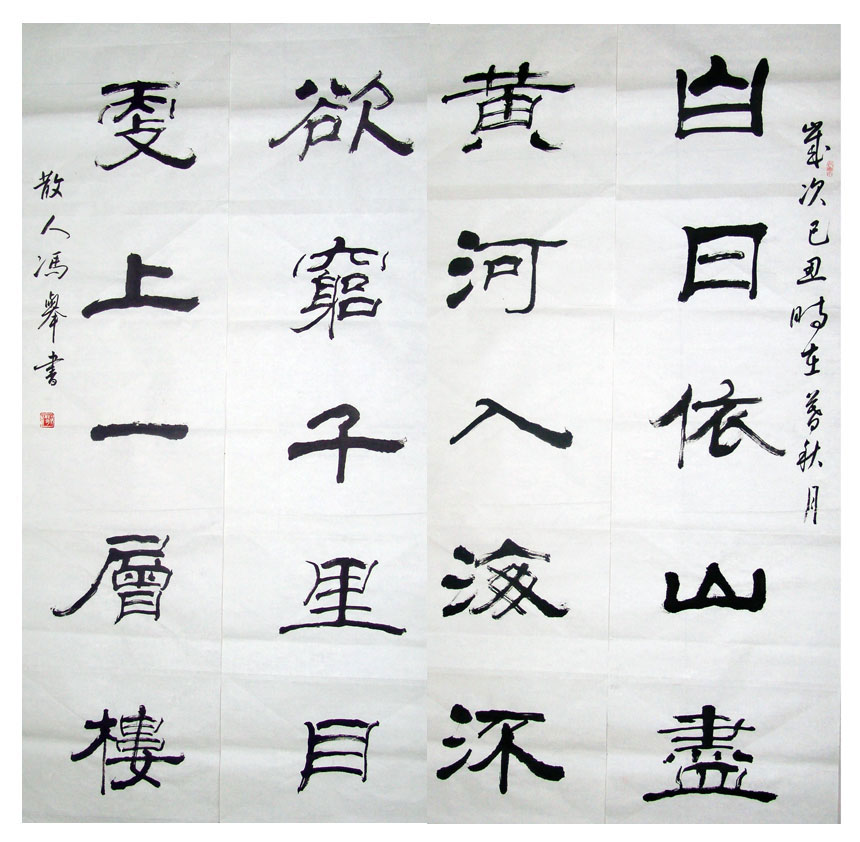 歲次己丑時在暮秋月
白日依山盡
黃河入海流
欲窮千里目
更上一層樓
散人馮舉書